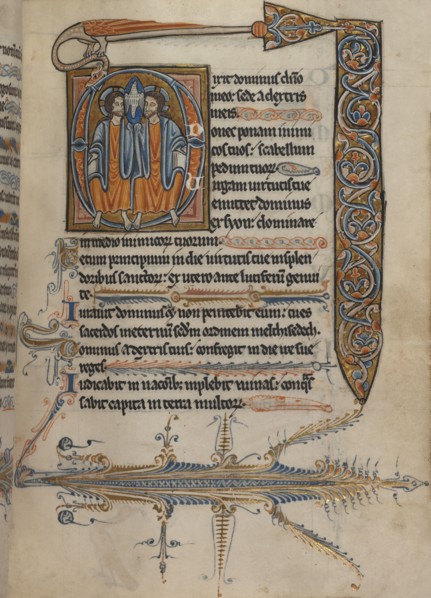 ixit dominus dño
meo: sede a dextris
meis.
onec ponam inimi
cos tuos: scabellum
pedum tuorum.
irgam uirtutis tue
emittet dominus
ex syon: dominare
in medio inimicorum tuorum.
ecum principium in die uirtutis tue in splen
doribus sanctorum: ex utero ante luciferum genui
te.
Iurauit dominus & non penitebit eum: tu es
sacerdos in eternum scđm ordinem melchisedech.
ominus a dextris tuis: confregit in die ire sue
reges.
Iudicabit in nacõib; inplebit ruinas: conqͣs
sabit capita in terra multorum.